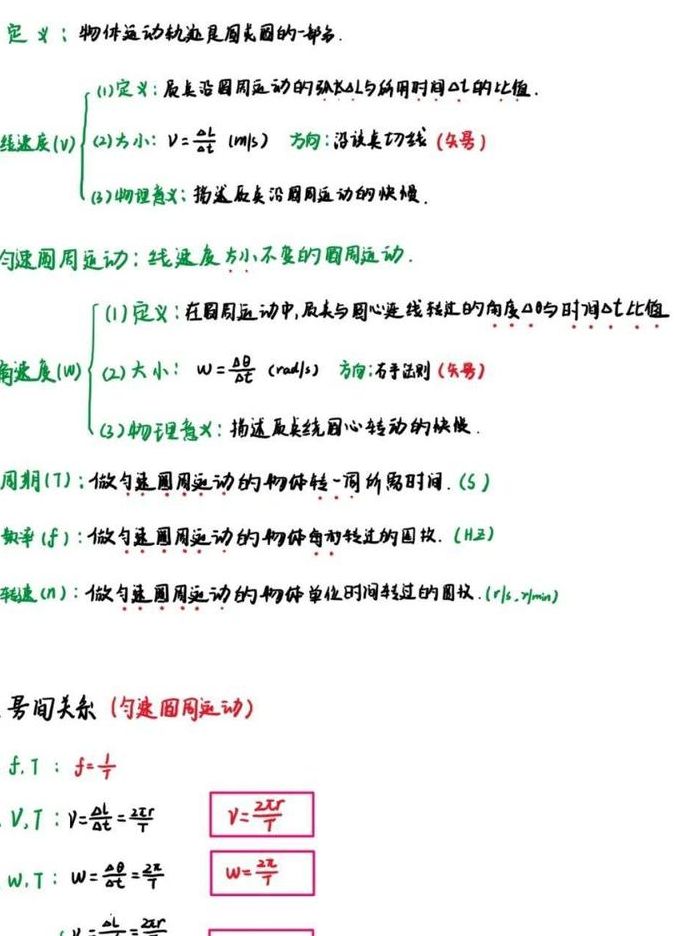 定义：物体运动轨迹是圆或圆的一部分.
(1)定义：质点沿圆周运动的弧长ΔL与所用时间Δt的比值.
线速度(V)
(2)大小：V=ΔL/Δt (m/s) 方向：沿该点切线 (矢量)
(3)物理意义：描述质点沿圆周运动的快慢.
匀速圆周运动：线速度大小不变的圆周运动.
(1)定义：在圆周运动中,质点与圆心连线转过的角度Δθ与时间Δt比值
角速度(W)
(2)大小：W=Δθ/Δt (rad/s) 方向：右手法则(矢量)
(3)物理意义：描述质点绕圆心转动的快慢.
周期(T)：做匀速圆周运动的物体转一周所需时间.(S)
频率(f)：做匀速圆周运动的物体每秒转过的圈数.(HZ)
转速(n)：做匀速圆周运动的物体单位时间转过的圈数.(r/s,r/min)
量间关系 (匀速圆周运动)
f,T：f=1/T
V,T：V=ΔL/Δt=2πr/T V=2πr/T
W,T：W=Δθ/Δt=2π/T W=2π/T
V=ΔL/Δt=2πr/T